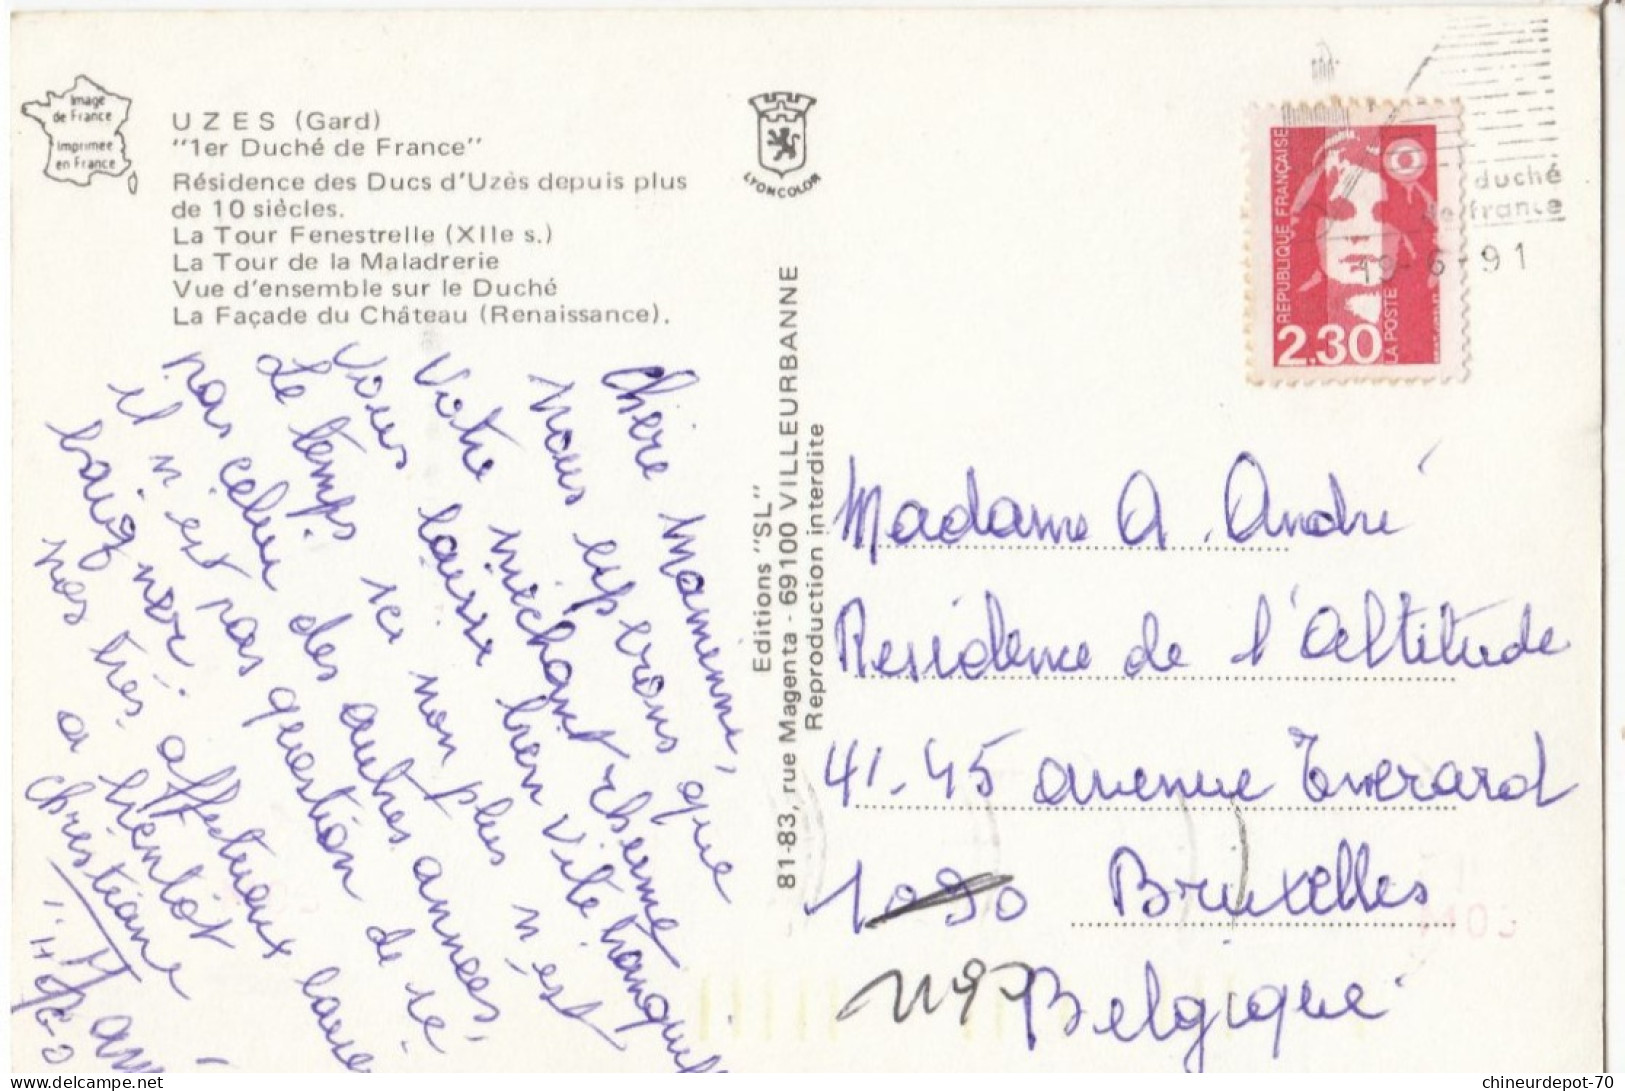 Image
de France
Imprimée
en France
UZES (Gard)
"1er Duché de France"
Résidence des Ducs d'Uzès depuis plus
de 10 siècles.
La Tour Fenestrelle (XIIe s.)
La Tour de la Maladrerie
Vue d'ensemble sur le Duché
La Façade du Château (Renaissance).
LYONCOLOR
Editions "SL"
81-83, rue Magenta - 69100 VILLEURBANNE
Reproduction interdite
REPUBLIQUE FRANÇAISE
2,30
LA POSTE
duché
de france
19-6-91
Chère Mamenne,
Nous espérons que
Votre michant rhume
Vous laisse bien vite tranquil
Le temps ici non plus n'est
pas celui des autres années,
il n'est pas question de se
baigner.
Nos très affectueux
a bientot
Christiane
Madame A. André
Residence de l'Altitude
41-45 avenue Everard
1090 Bruxelles
1190 Belgique
chineurdepot-70